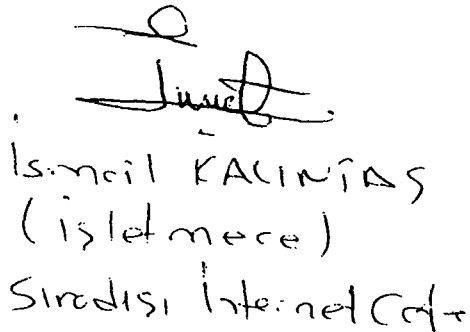 İsmail KALINTAŞ
(işletmece)
Sıradışı İnternet Cafe